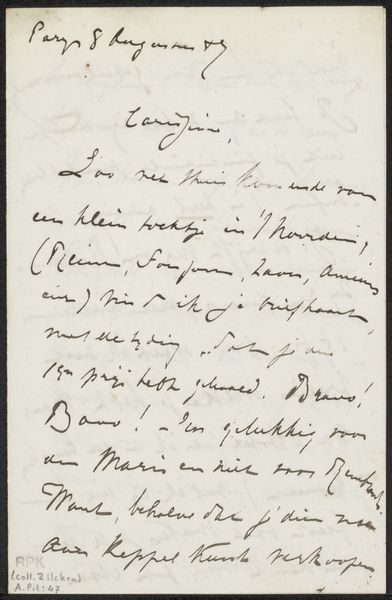 Parijs 8 Augustus 87
Carissime,
Zoo net thuis komende van
een klein tochtje in 't Noorden,
(Reims, Soissons, Laon, Amiens
enz) vind ik je briefkaart
met de tijding dat je den
1en prijs hebt gehaald. Bravo!
Bravo! - Zeer gelukkig voor
den Maris en niet voor Rembrandt.
Want, behalve dat je dien
aan Keppel kunt verkoopen
RPK
(coll. Zilcken)
A. Pit: 47